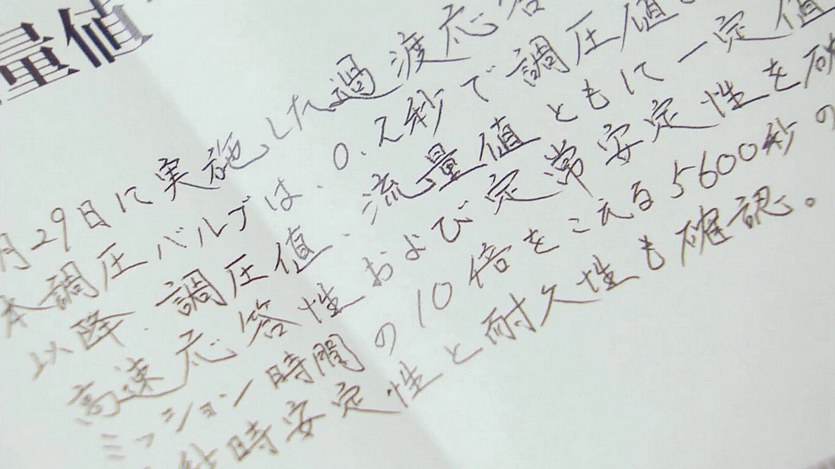 量値
月29日に実施した過渡応答
本調圧バルブは、0.2秒で調圧値。
以降、調圧値、流量値ともに一定値
高速応答性および定常安定性を確
ミッション時間の10倍をこえる5600秒の
時安定性と耐久性も確認。